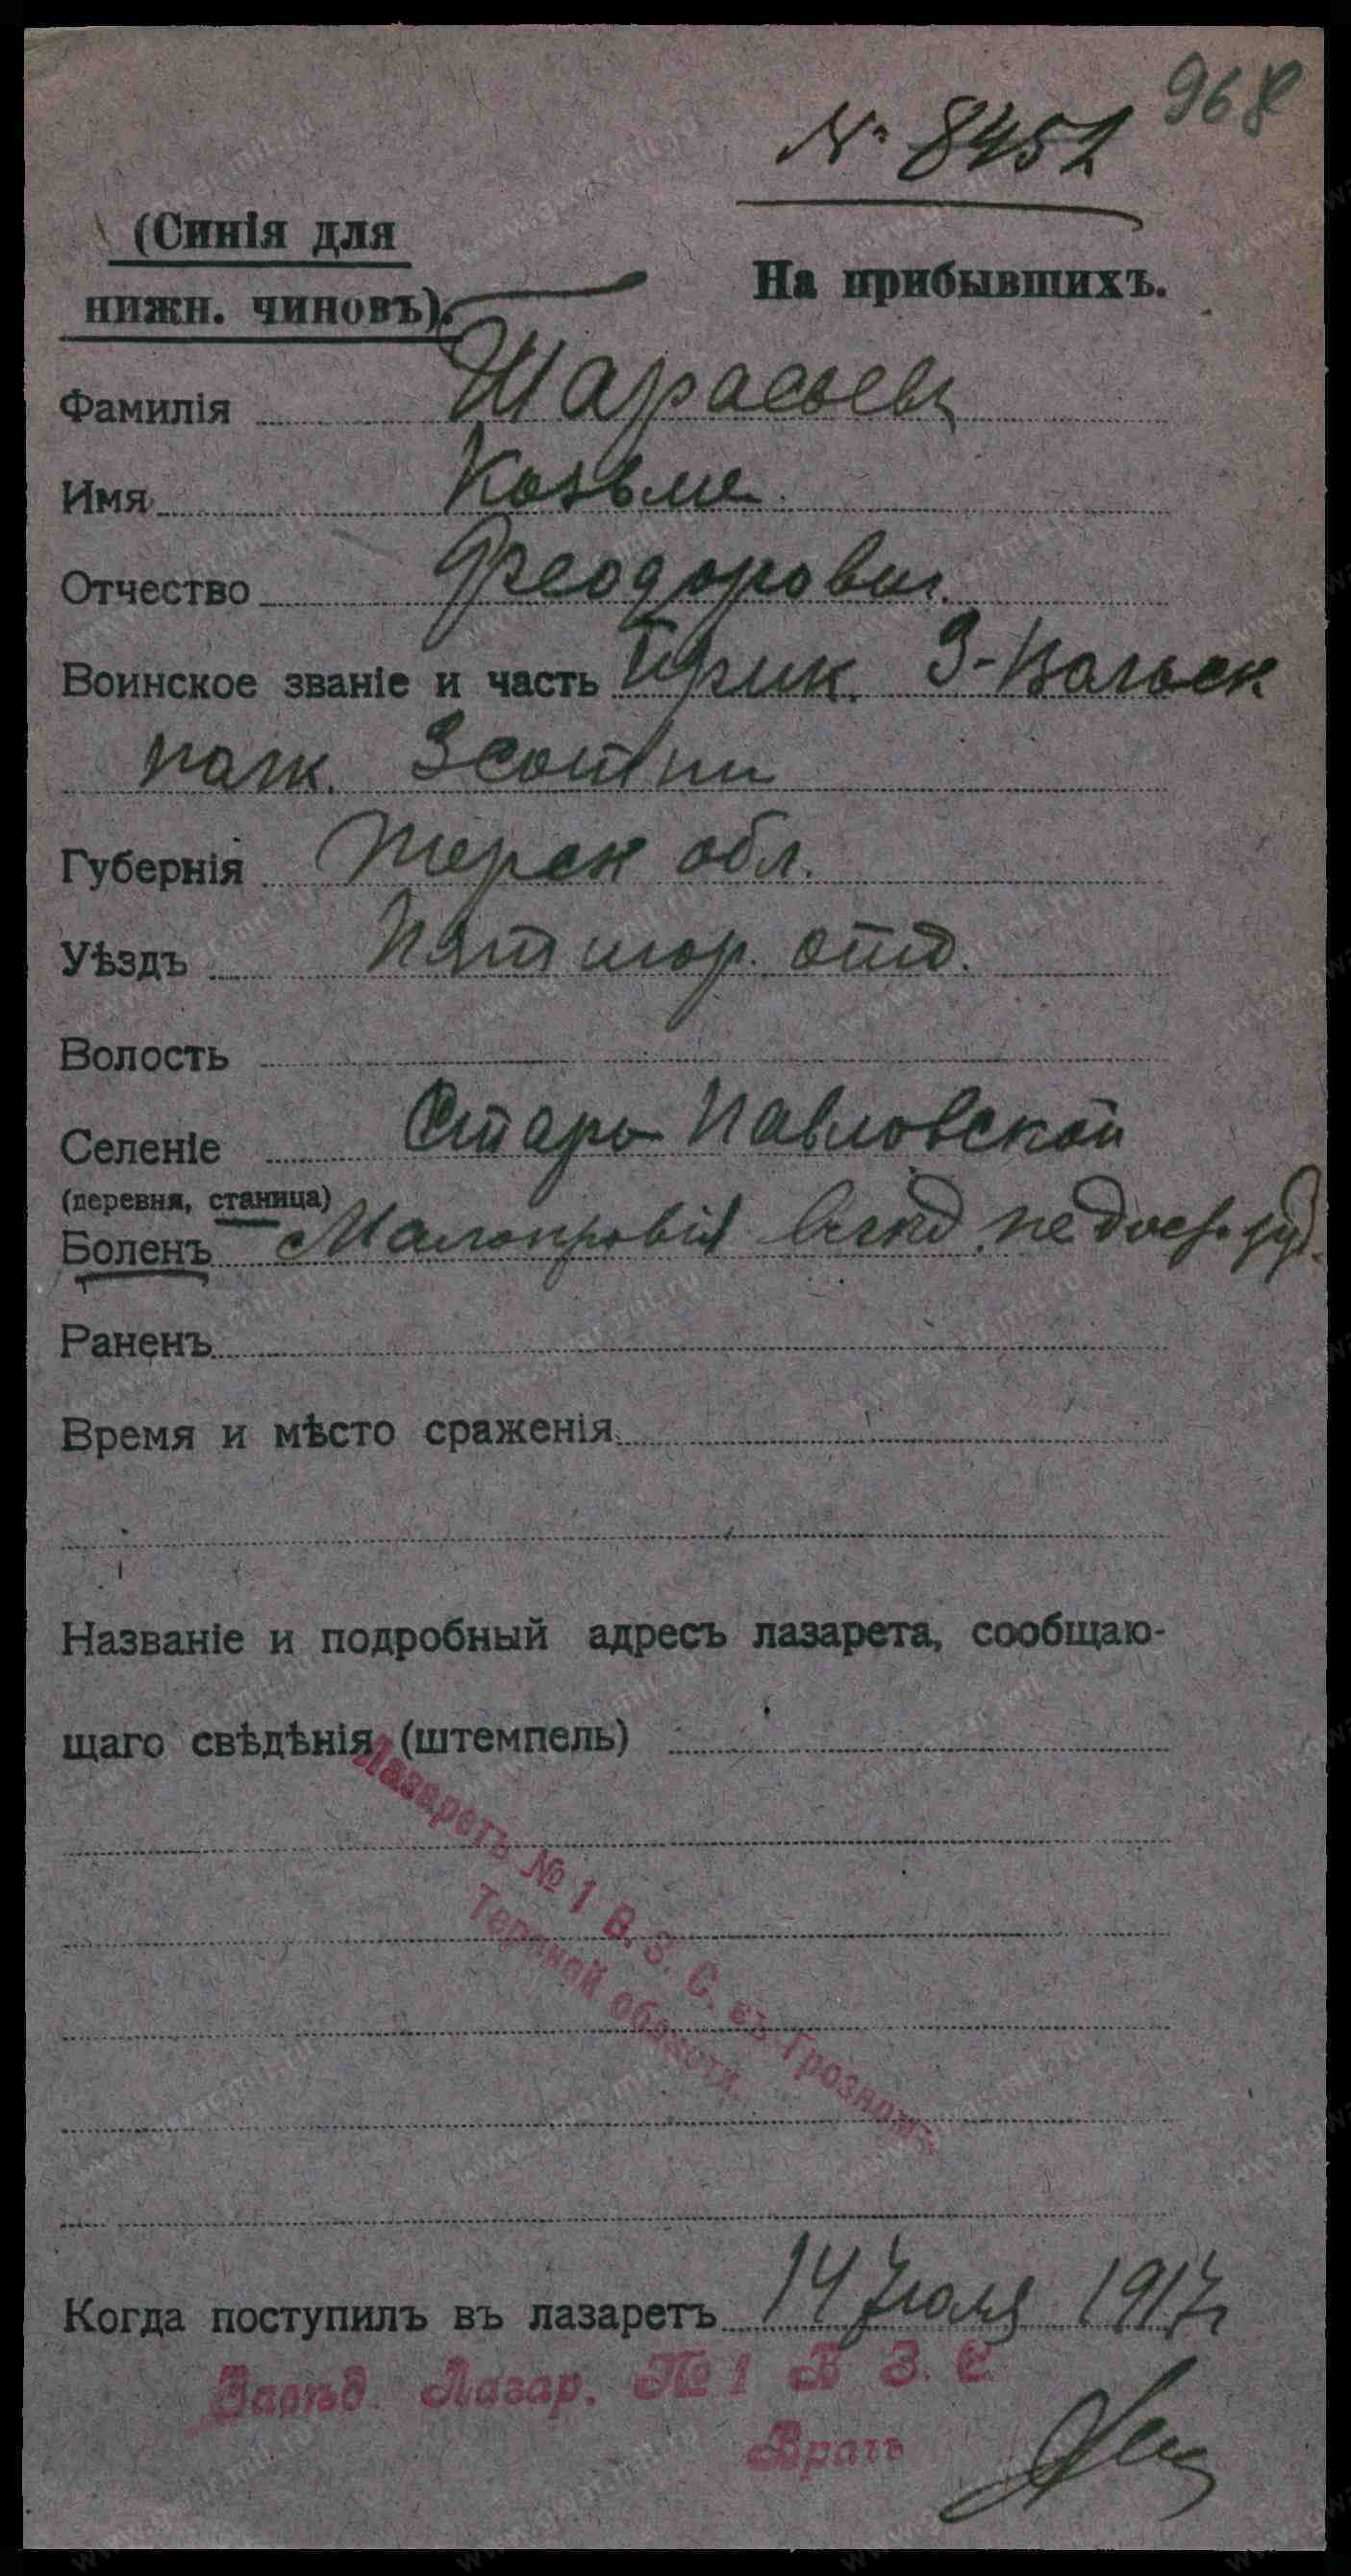 968
№ 8452
(Синія для
нижн. чиновъ).
На прибывшихъ.
Фамилія Шарасьевъ
Имя Козьме
Отчество Феодорович
Воинское званіе и часть 3-Вольск
полк. 3 сотни
Губернія Терск обл.
Уѣздъ Пятигор. отд.
Волость
Селеніе Старо Павловской
(деревня, станица)
Боленъ Малокровія
Раненъ
Время и мѣсто сраженія
Названіе и подробный адресъ лазарета, сообщаю-
щаго свѣдѣнія (штемпель)
Лазаретъ № 1 В. З. С. въ Грозномъ
Терской области.
Когда поступилъ въ лазаретъ 14 Июля 1917
Завѣд. Лазар. № 1 В З. С
Врачъ